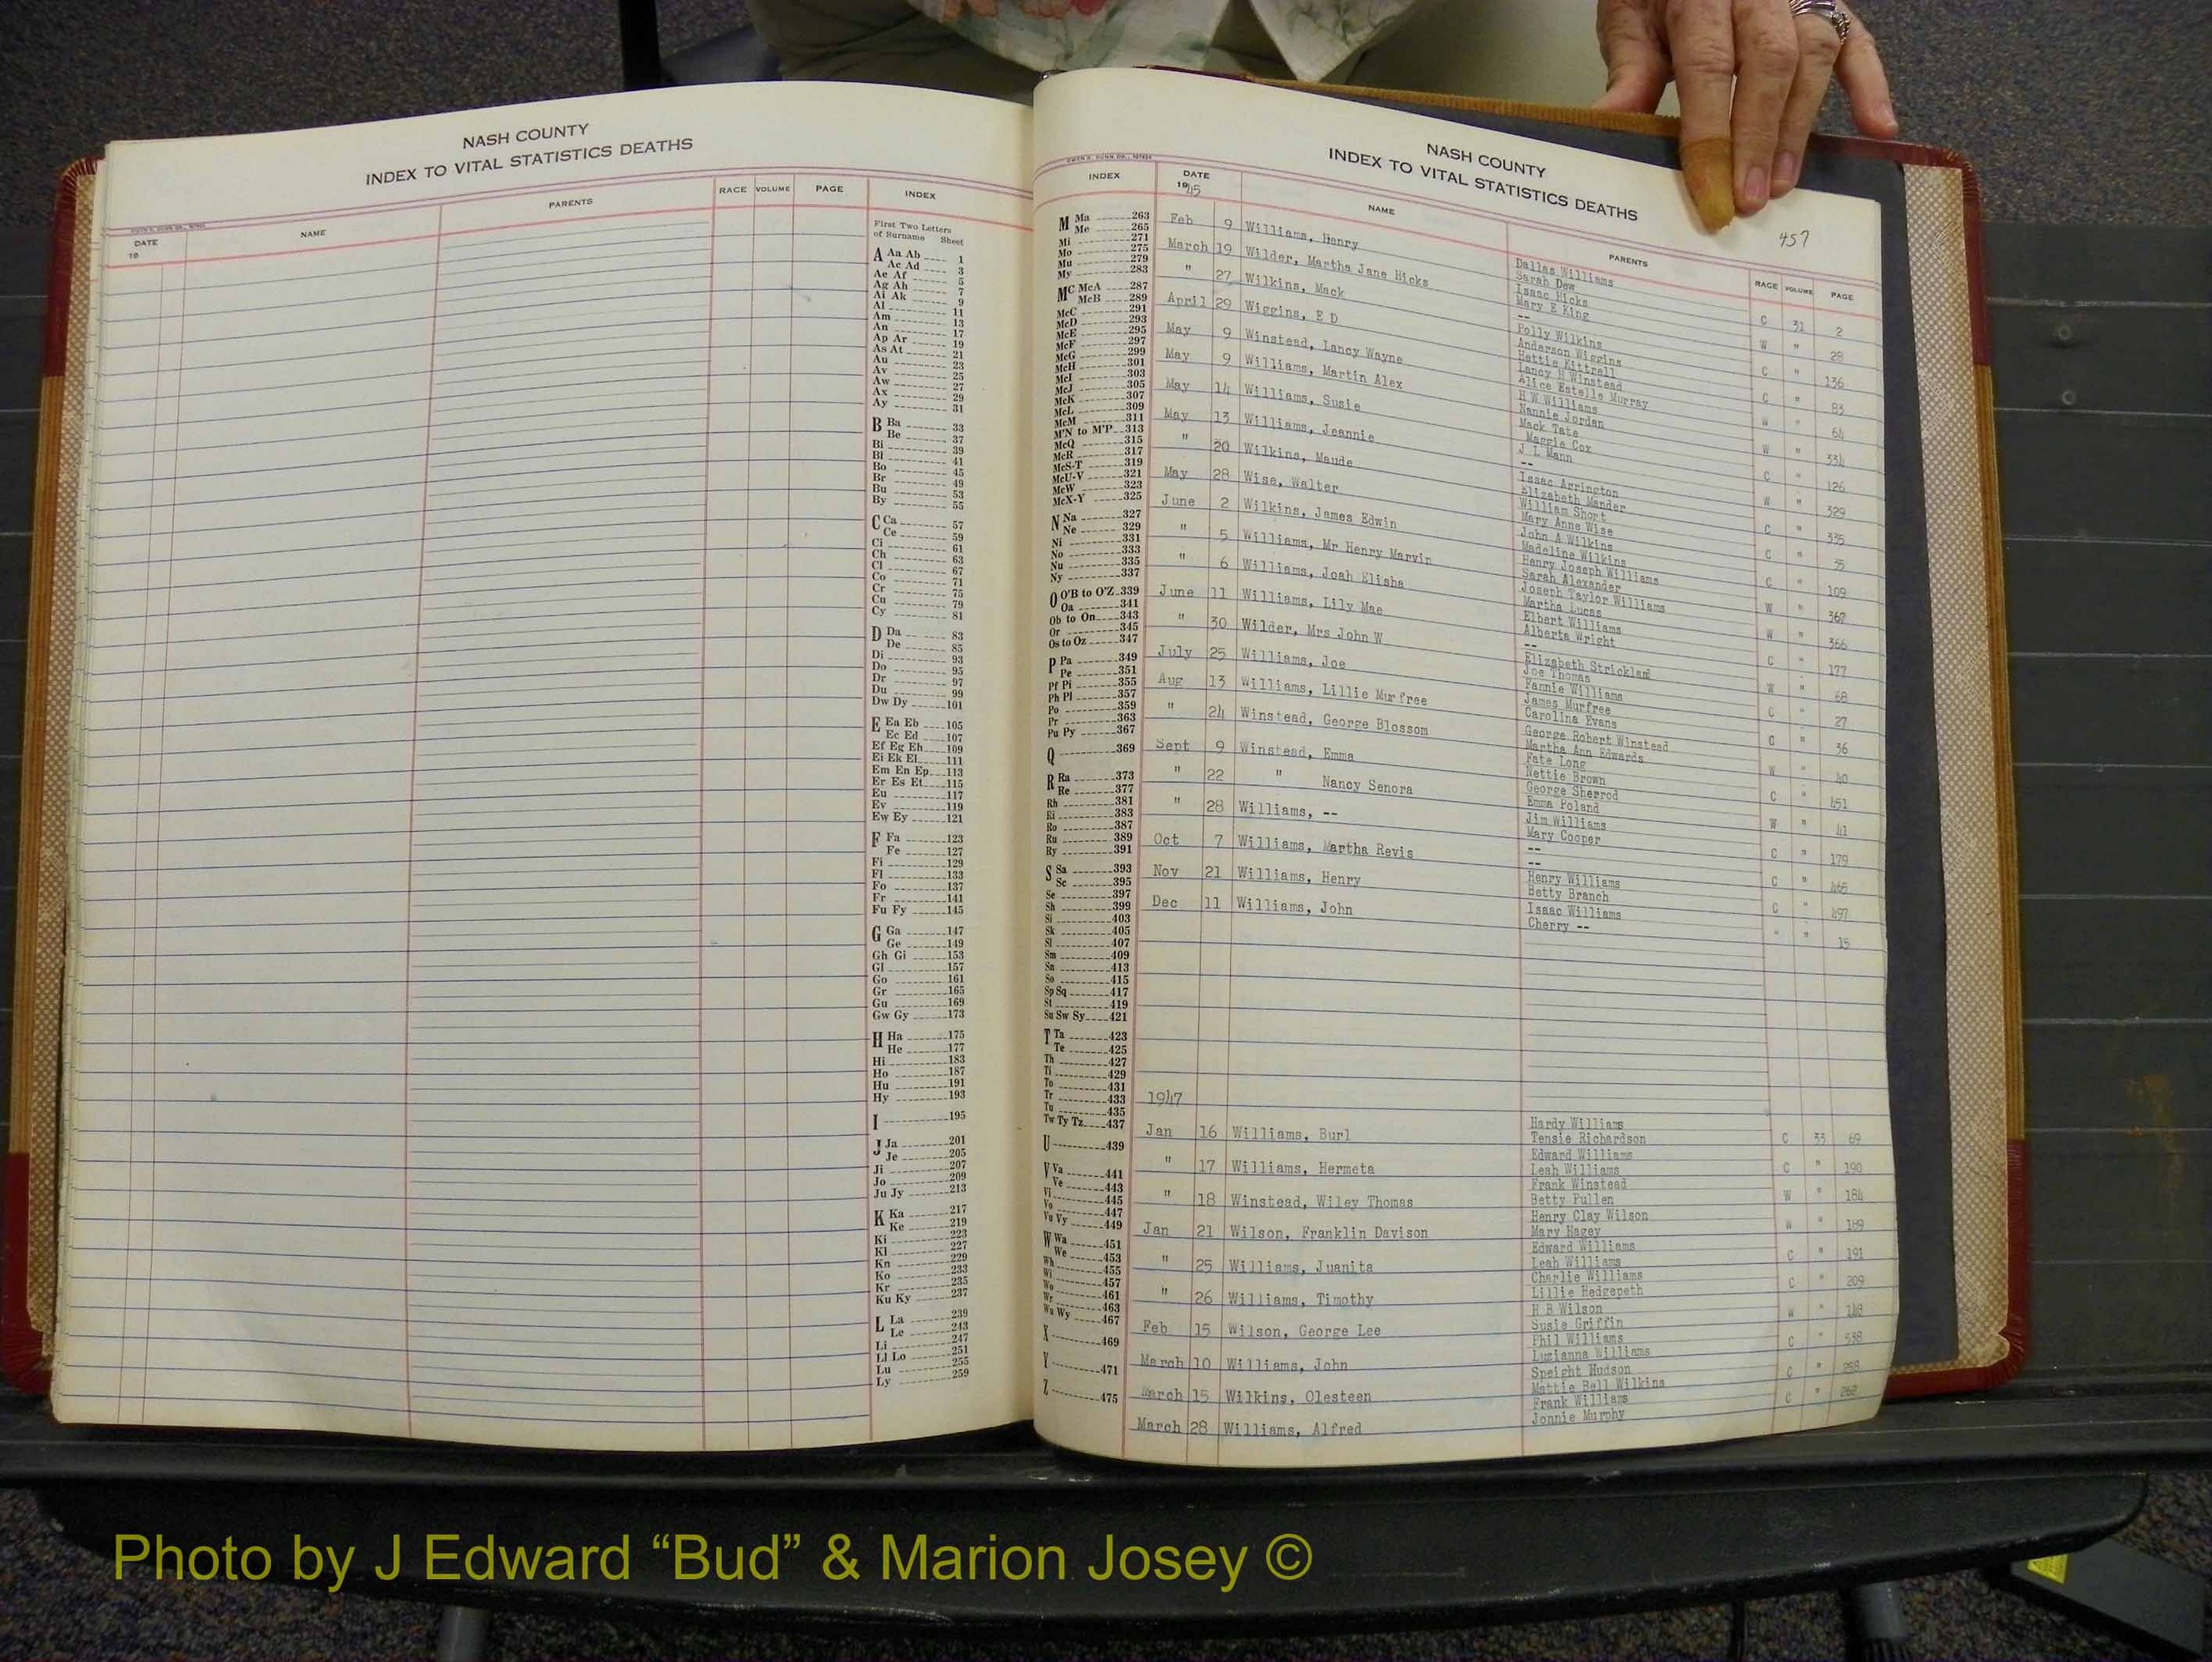 NASH COUNTY
INDEX TO VITAL STATISTICS DEATHS
DATE
19
NAME
PARENTS
RACE VOLUME PAGE
INDEX
First Two Letters
of Surname Sheet
A Aa Ab 1
Ac Ad 3
Ae Af 5
Ag Ah 7
Ai Ak 9
Al 11
Am 13
An 17
Ap Ar 19
As At 21
Au 23
Av 25
Aw 27
Ax 29
Ay 31
B Ba 33
Be 37
Bi 39
Bl 41
Bo 45
Br 49
Bu 53
By 55
C Ca 57
Ce 59
Ci 61
Ch 63
Cl 67
Co 71
Cr 75
Cu 79
Cy 81
D Da 83
De 85
Di 93
Do 95
Dr 97
Du 99
Dw Dy 101
E Ea Eb 105
Ec Ed 107
Ef Eg Eh 109
Ei Ek El 111
Em En Ep 113
Er Es Et 115
Eu 117
Ev 119
Ew Ey 121
F Fa 123
Fe 127
Fi 129
Fl 133
Fo 137
Fr 141
Fu Fy 145
G Ga 147
Ge 149
Gh Gi 153
Gl 157
Go 161
Gr 165
Gu 169
Gw Gy 173
H Ha 175
He 177
Hi 183
Ho 187
Hu 191
Hy 193
I 195
J Ja 201
Je 205
Ji 207
Jo 209
Ju Jy 213
K Ka 217
Ke 219
Ki 223
Kl 227
Kn 229
Ko 233
Kr 235
Ku Ky 237
L La 239
Le 243
Li 247
Ll Lo 251
Lu 255
Ly 259
NASH COUNTY
INDEX TO VITAL STATISTICS DEATHS
457
INDEX
DATE
1945
NAME
PARENTS
RACE VOLUME PAGE
M Ma 263
Me 265
Mi 271
Mo 275
Mu 279
My 283
Mc McA 287
McB 289
McC 291
McD 293
McE 295
McF 297
McG 299
McH 301
McI 303
McJ 305
McK 307
McL 309
McM 311
M'N to M'P 313
McQ 315
McR 317
McS-T 319
McU-V 321
McW 323
McX-Y 325
N Na 327
Ne 329
Ni 331
No 333
Nu 335
Ny 337
O O'B to O'Z 339
Oa 341
Ob to On 343
Or 345
Os to Oz 347
P Pa 349
Pe 351
Pf Pi 355
Ph Pl 357
Po 359
Pr 363
Pu Py 367
Q 369
R Ra 373
Re 377
Rh 381
Ri 383
Ro 387
Ru 389
Ry 391
S Sa 393
Sc 395
Se 397
Sh 399
Si 403
Sk 405
Sl 407
Sm 409
Sn 413
So 415
Sp Sq 417
St 419
Su Sw Sy 421
T Ta 423
Te 425
Th 427
Ti 429
To 431
Tr 433
Tu 435
Tw Ty Tz 437
U 439
V Va 441
Ve 443
Vi 445
Vo 447
Vu Vy 449
W Wa 451
We 453
Wh 455
Wi 457
Wo 461
Wr 463
Wu Wy 467
X 469
Y 471
Z 475
Feb 9 Williams, Henry Dallas Williams
Sarah Dew C 31 2
March 19 Wilder, Martha Jane Hicks Isaac Hicks
Mary E King W " 28
" 27 Wilkins, Mack --
Polly Wilkins C " 136
April 29 Wiggins, E D Anderson Wiggins
Hettie Kittrell C " 83
May 9 Winstead, Lancy Wayne Lancy H Winstead
Alice Estelle Murray W " 64
May 9 Williams, Martin Alex H W Williams
Nannie Jordan W " 334
May 14 Williams, Susie Mack Tate
Maggie Cox C " 126
May 13 Williams, Jeannie J L Mann
-- W " 329
" 20 Wilkins, Maude Isaac Arrington
Elizabeth Mander C " 335
May 28 Wise, Walter William Short
Mary Anne Wise C " 35
June 2 Wilkins, James Edwin John A Wilkins
Madeline Wilkins C " 109
" 5 Williams, Mr Henry Marvin Henry Joseph Williams
Sarah Alexander W " 367
" 6 Williams, Joah Elisha Joseph Taylor Williams
Martha Lucas W " 366
June 11 Williams, Lily Mae Elbert Williams
Alberta Wright C " 177
" 30 Wilder, Mrs John W --
Elizabeth Strickland W " 68
July 25 Williams, Joe Joe Thomas
Fannie Williams C " 27
Aug 13 Williams, Lillie Murfree James Murfree
Carolina Evans C " 36
" 24 Winstead, George Blossom George Robert Winstead
Martha Ann Edwards W " 40
Sept 9 Winstead, Emma Fate Long
Nettie Brown C " 451
" 22 " Nancy Senora George Sherrod
Emma Poland W " 41
" 28 Williams, -- Jim Williams
Mary Cooper C " 179
Oct 7 Williams, Martha Revis --
-- C " 465
Nov 21 Williams, Henry Henry Williams
Betty Branch C " 497
Dec 11 Williams, John Isaac Williams
Cherry -- " " 15
1947
Jan 16 Williams, Burl Hardy Williams
Tensie Richardson C 33 69
" 17 Williams, Hermeta Edward Williams
Leah Williams C " 190
" 18 Winstead, Wiley Thomas Frank Winstead
Betty Pullen W " 184
Jan 21 Wilson, Franklin Davison Henry Clay Wilson
Mary Hagey W " 189
" 25 Williams, Juanita Edward Williams
Leah Williams C " 191
" 26 Williams, Timothy Charlie Williams
Lillie Hedgepeth C " 209
Feb 15 Wilson, George Lee H B Wilson
Susie Griffin W " 148
March 10 Williams, John Phil Williams
Luzianna Williams C " 538
March 15 Wilkins, Olesteen Speight Hudson
Mattie Bell Wilkins C "
March 28 Williams, Alfred Frank Williams
Jonnie Murphy C " 262
Photo by J Edward “Bud” & Marion Josey ©